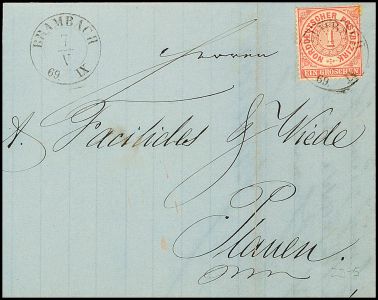 BRAMBACH
7
V
69 IX
NORDDEUTSCHER POSTBEZIRK
1
EIN GROSCHEN
69
Herren
A. Facilides & Wiede
Plauen.